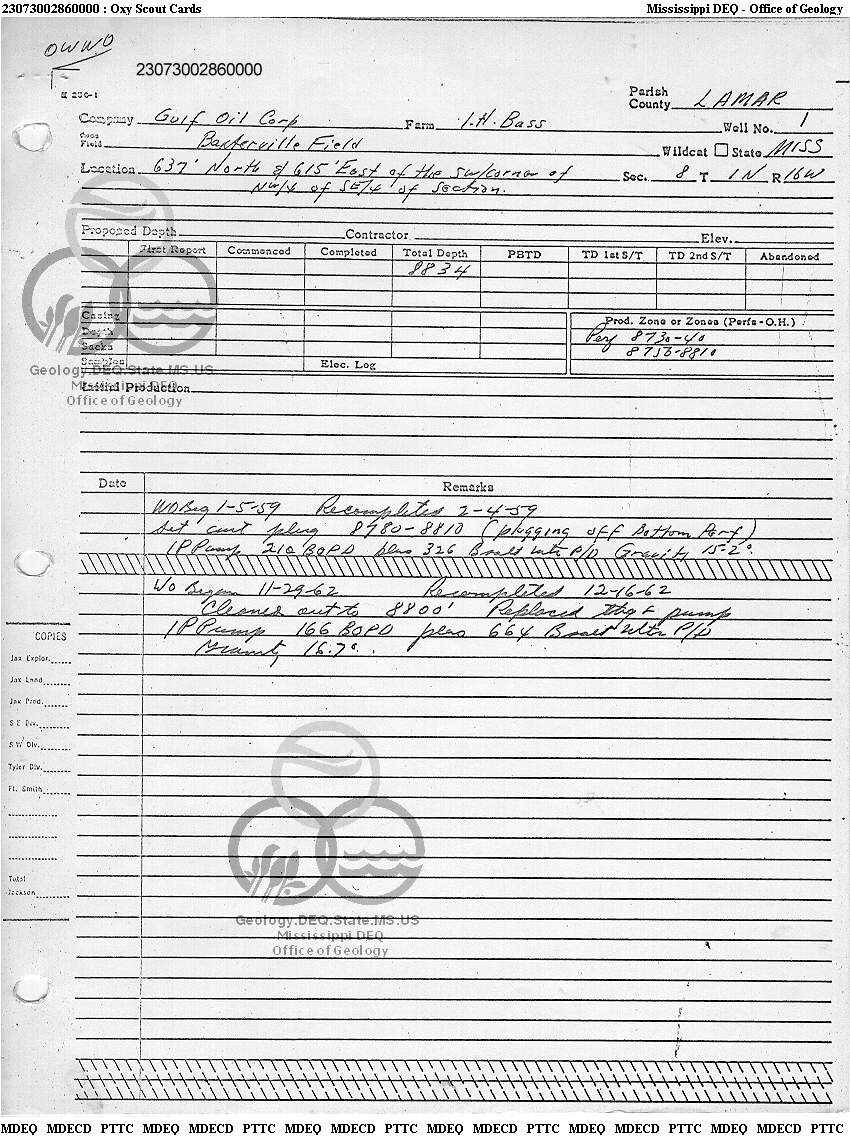 23073002860000 : Oxy Scout Cards Mississippi DEQ - Office of Geology
OWWO
23073002860000
Parish
County LAMAR
Company Gulf Oil Corp Farm I.H. Bass Well No. 1
Field Baxterville Field Wildcat State MISS
Location 637' North & 615' East of the SW/corner of Sec. 8 T 1N R 16W
NW/4 of SE/4 of Section.
Proposed Depth Contractor Elev.
First Report Commenced Completed Total Depth PBTD TD 1st S/T TD 2nd S/T Abandoned
8834
Casing Prod. Zone or Zones (Perfs-O.H.)
Depth Perf 8730-40
Sacks 8756-8810
Samples Elec. Log
Geology.DEQ.State.MS.US
Mississippi DEQ
Office of Geology
Initial Production
Date Remarks
WO Beg 1-5-59 Recompleted 2-4-59
Set cmt plug 8780-8810 (plugging off Bottom Perf)
IP Pump 210 BOPD plus 326 B salt wtr P/D Gravity 15.2°
WO Began 11-29-62 Recompleted 12-16-62
Cleaned out to 8800' Replaced tbg & pump
IP Pump 166 BOPD plus 664 B salt wtr P/D
Gravity 16.7°.
COPIES
Jax Explor.
Jax Land
Jax Prod.
S E Div.
S W Div.
Tyler Div.
Ft. Smith
Total
Jackson
Geology.DEQ.State.MS.US
Mississippi DEQ
Office of Geology
MDEQ MDECD PTTC MDEQ MDECD PTTC MDEQ MDECD PTTC MDEQ MDECD PTTC MDEQ MDECD PTTC MDEQ MDECD PTTC